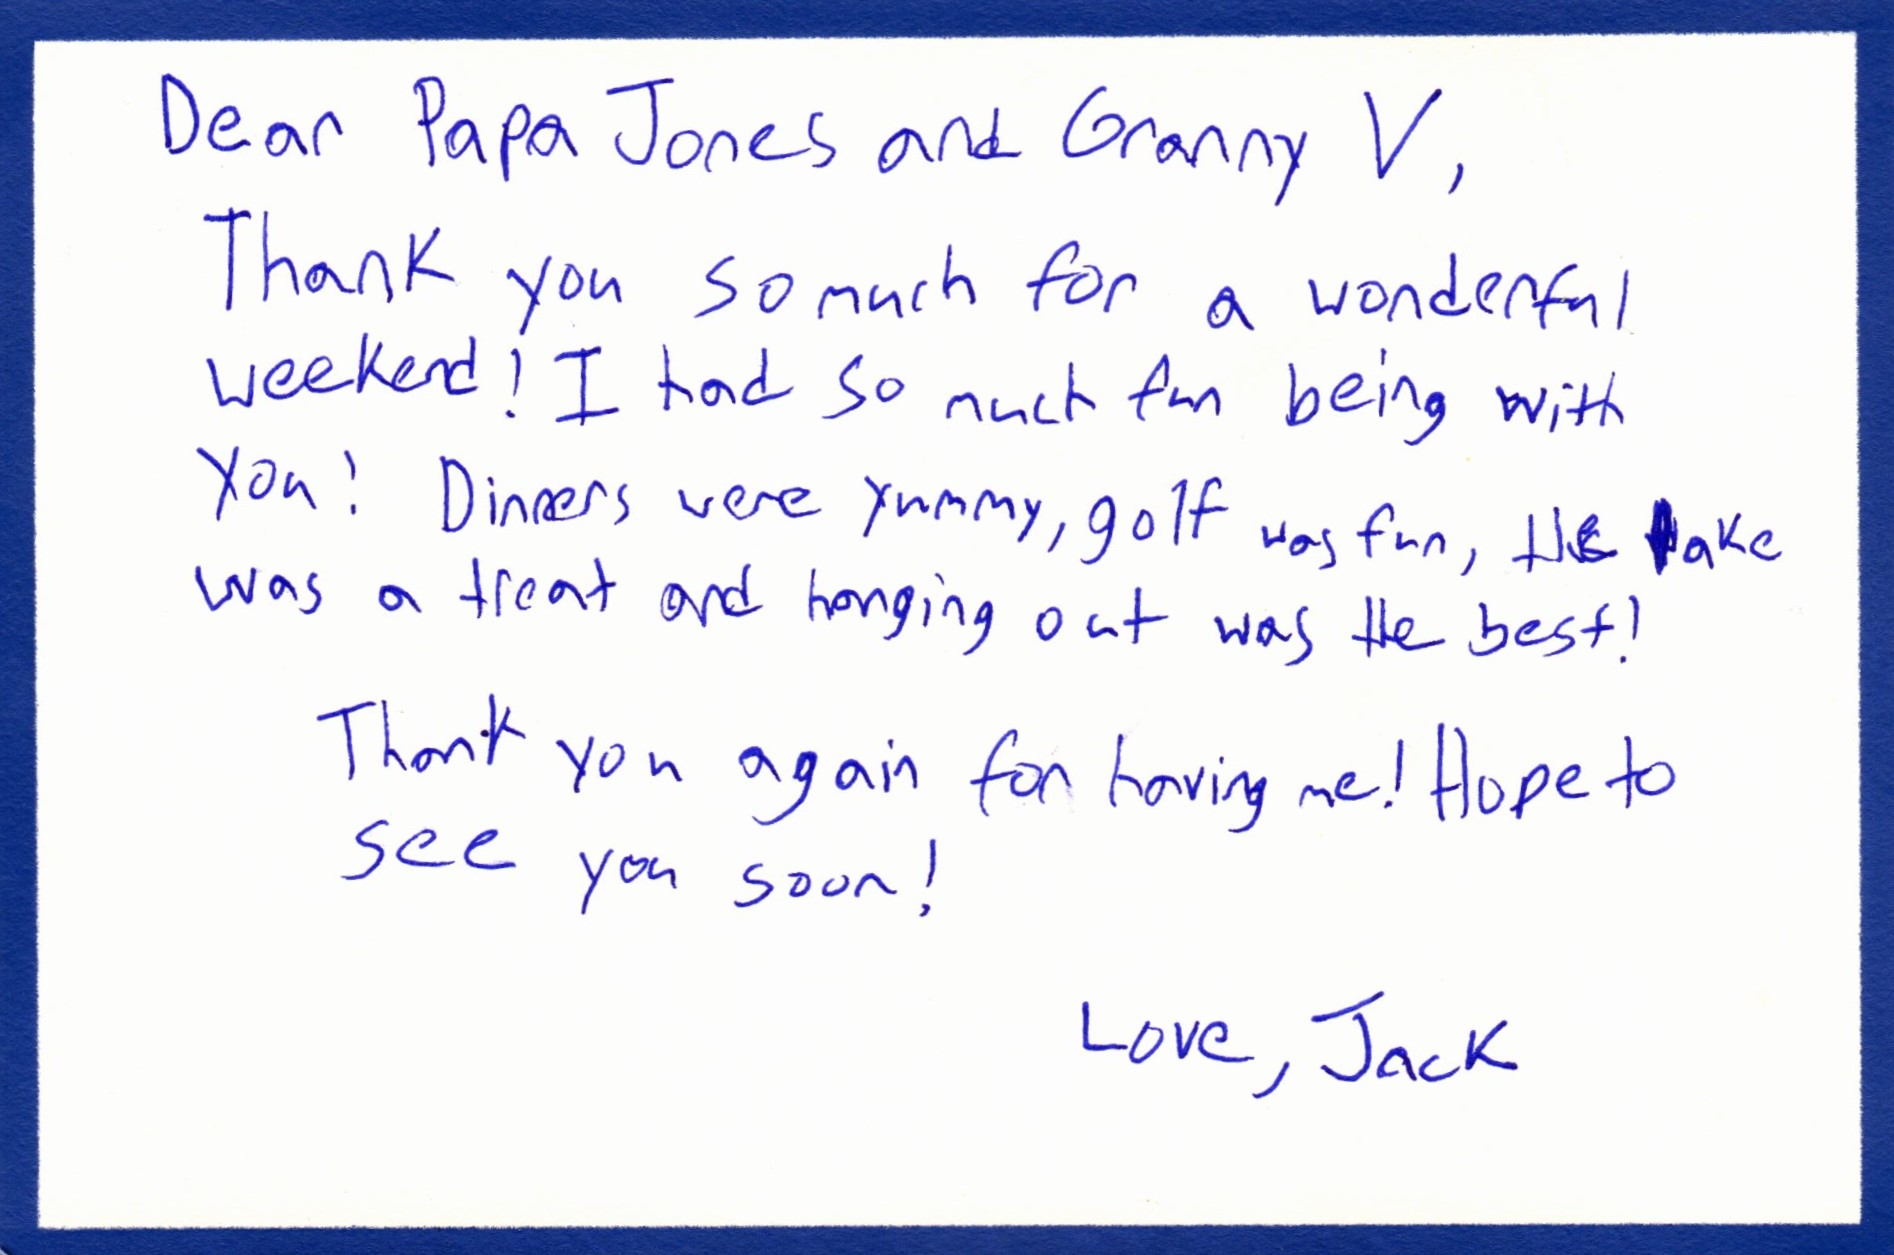 Dear Papa Jones and Granny V,
Thank you so much for a wonderful
weekend! I had so much fun being with
you! Dinners were yummy, golf was fun, the lake
was a treat and hanging out was the best!
Thank you again for having me! Hope to
see you soon!
Love, Jack